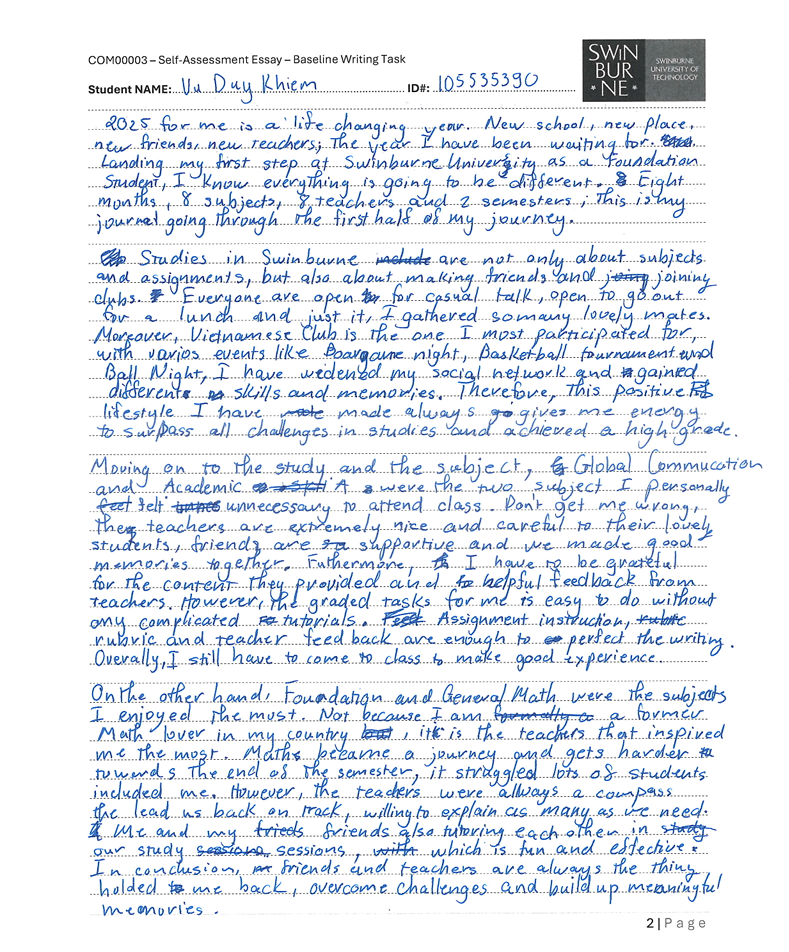 COM00003 – Self-Assessment Essay – Baseline Writing Task
Student NAME: Vu Duy Khiem ID#: 105535390
SWIN BUR NE
SWINBURNE UNIVERSITY OF TECHNOLOGY
2025 for me is a life changing year. New school, new place,
new friends, new teachers; The year I have been waiting for.
Landing my first step at Swinburne University as a Foundation
Student, I know everything is going to be different. Eight
months, 8 subjects, 8 teachers and 2 semesters; This is my
journal going through the first half of my journey.
Studies in Swinburne include are not only about subjects
and assignments, but also about making friends and joing joining
clubs. Everyone are open for casual talk, open to go out
for a lunch and just it, I gathered so many lovely mates.
Moreover, Vietnamese Club is the one I most participated for,
with varios events like Boargame night, Basketball tournament and
Ball Night, I have widened my social network and gained
different skills and memories. Therefore, this positive
lifestyle I have made always gives me energy
to surpass all challenges in studies and achieved a high grade.
Moving on to the study and the subject, Global Commucation
and Academic Skill A were the two subject I personally
feet felt unnecessary to attend class. Don't get me wrong,
the teachers are extremely nice and careful to their lovely
students, friends are supportive and we made good
memories together. Futhermore, I have to be grateful
for the content they provided and helpful feedback from
teachers. However, the graded tasks for me is easy to do without
any complicated tutorials. Assignment instruction, rubric
rubric and teacher feedback are enough to perfect the writing.
Overally, I still have to come to class to make good experience.
On the other hand, Foundation and General Math were the subjects
I enjoyed the most. Not because I am formally a former
Math lover in my country, it is the teachers that inspired
me the most. Maths became a journey and gets harder
towards the end of the semester, it struggled lots of students
included me. However, the teachers were always a compass
the lead us back on track, willing to explain as many as we need.
Me and my frieds friends also tutoring each other in study
our study sessions, with which is fun and effective.
In conclusion, friends and teachers are always the thing
holded me back, overcome challenges and build up meaningful
memories.
2 | Page